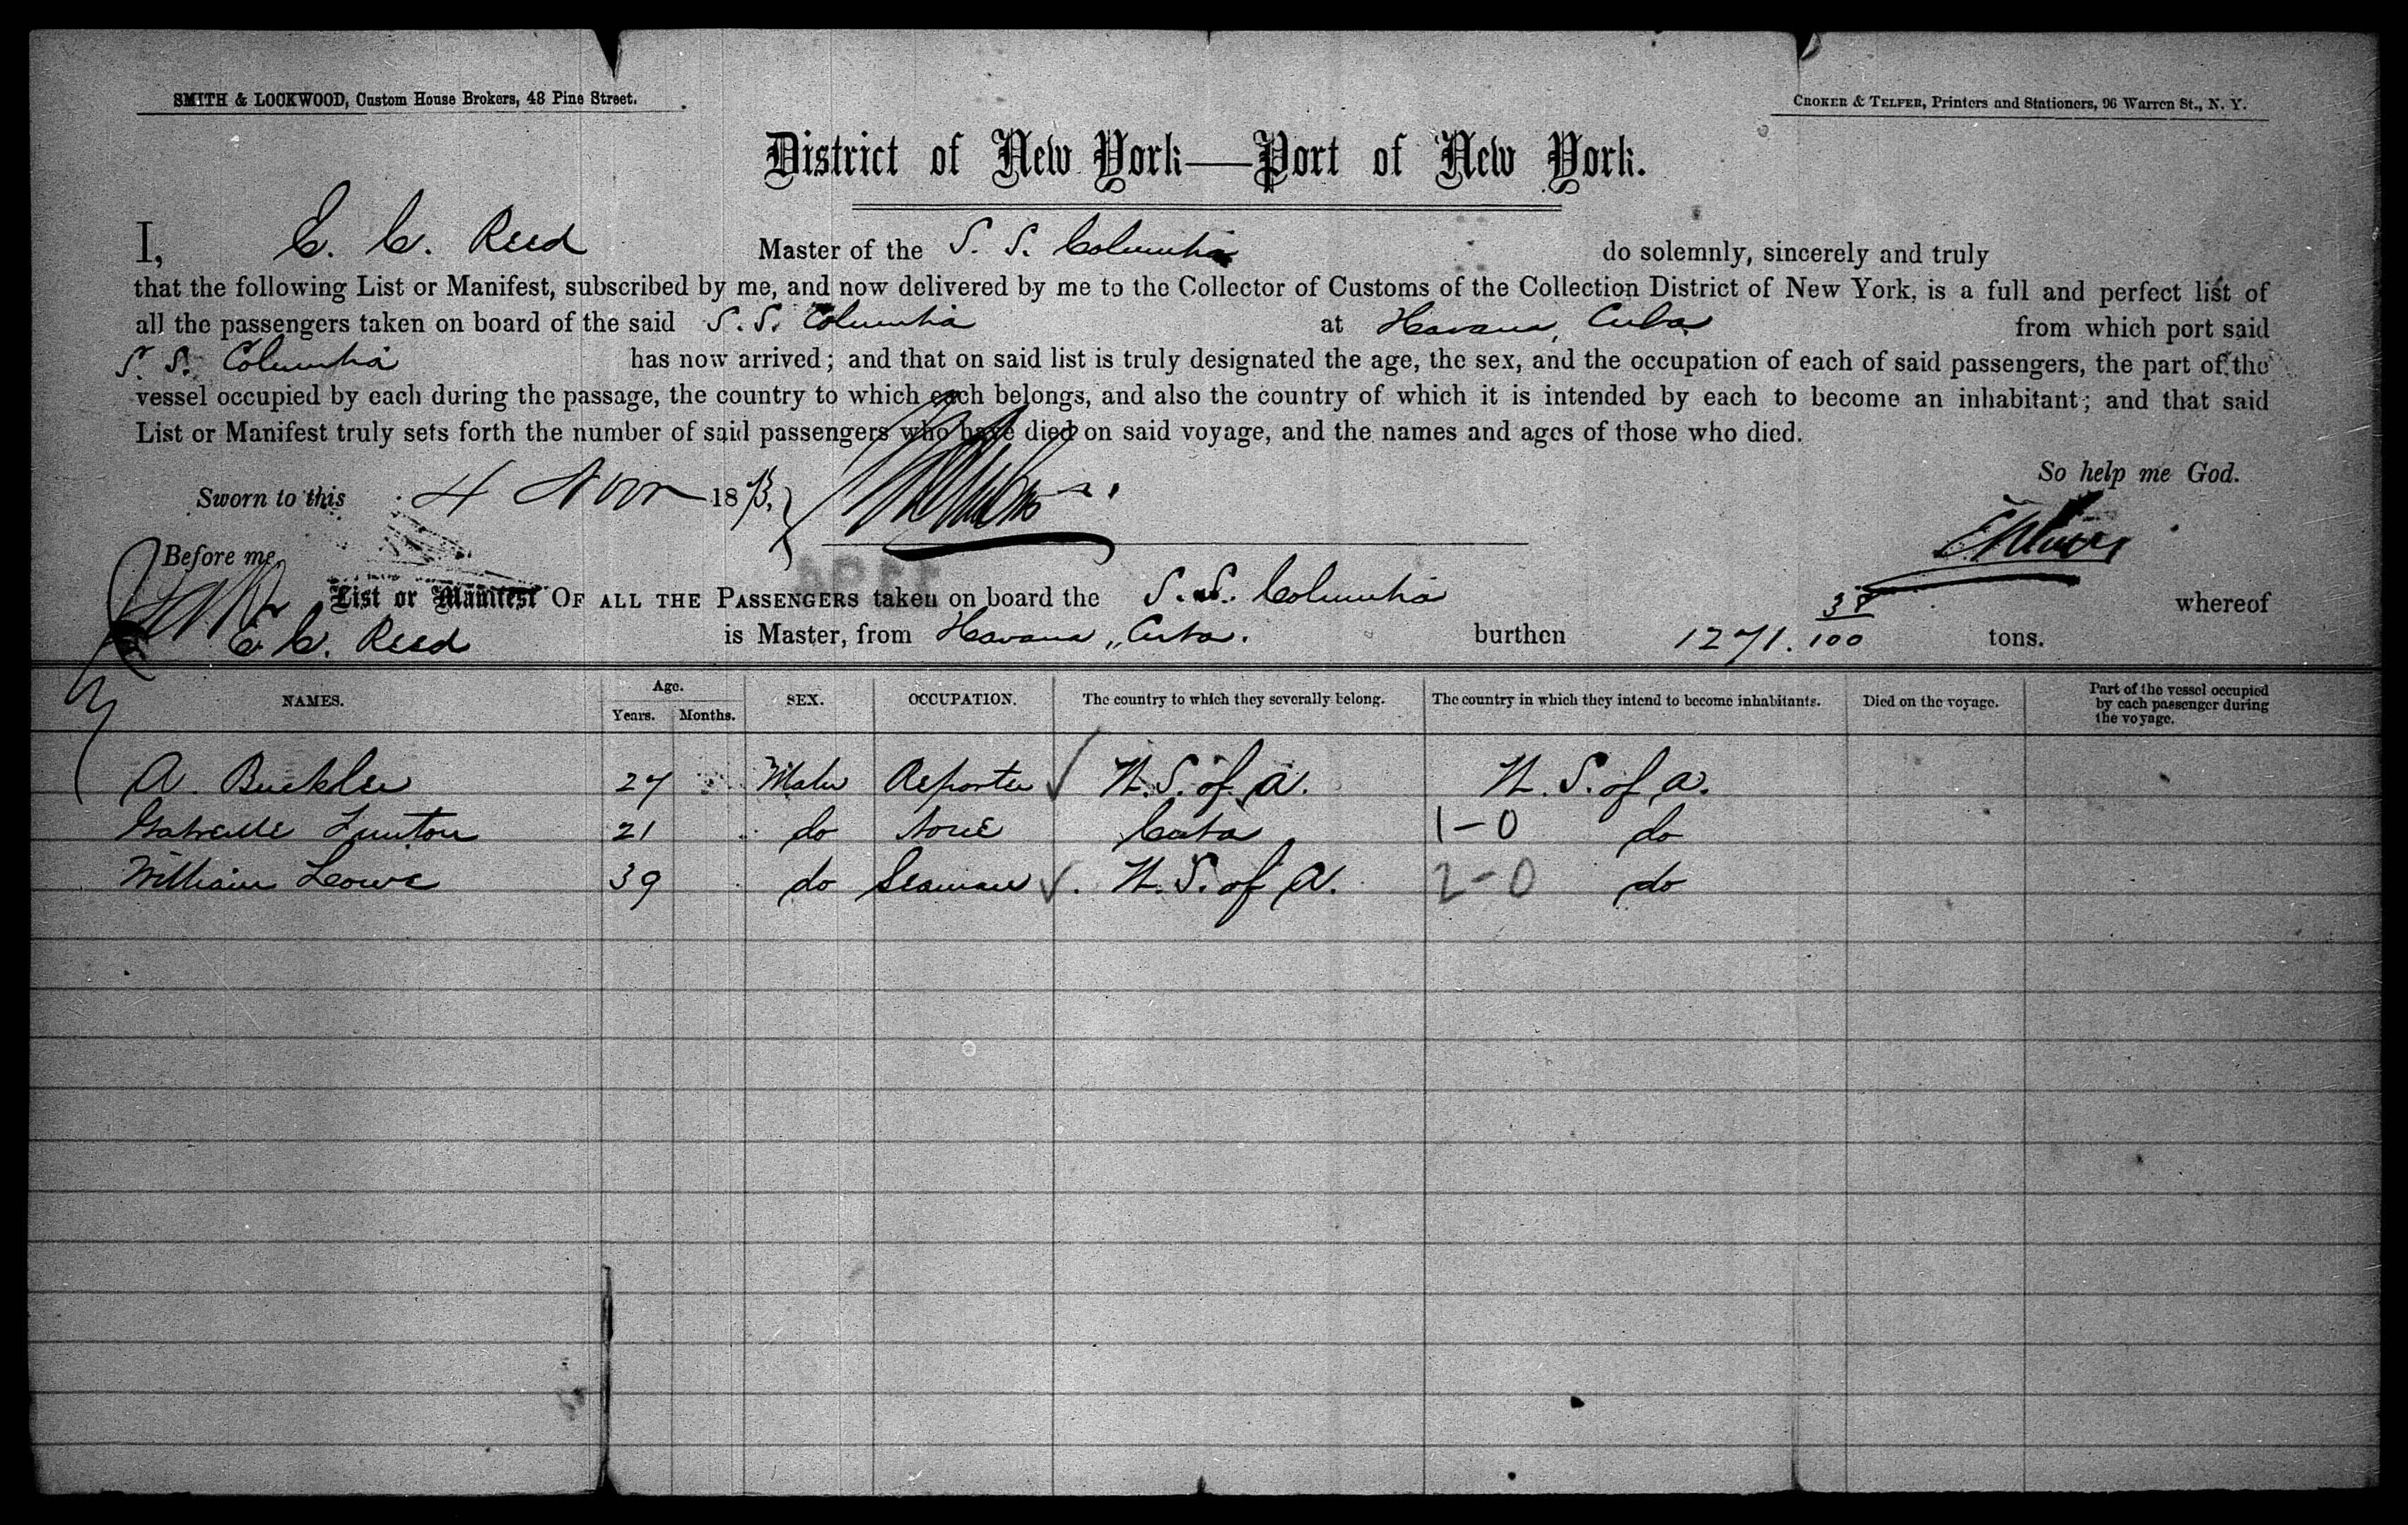 SMITH & LOCKWOOD, Custom House Brokers, 48 Pine Street.
CROKER & TELFER, Printers and Stationers, 96 Warren St., N. Y.
District of New York—Port of New York.
I, E. C. Reed Master of the S. S. Columbia do solemnly, sincerely and truly
that the following List or Manifest, subscribed by me, and now delivered by me to the Collector of Customs of the Collection District of New York, is a full and perfect list of
all the passengers taken on board of the said S. S. Columbia at Havana, Cuba from which port said
S. S. Columbia has now arrived; and that on said list is truly designated the age, the sex, and the occupation of each of said passengers, the part of the
vessel occupied by each during the passage, the country to which each belongs, and also the country of which it is intended by each to become an inhabitant; and that said
List or Manifest truly sets forth the number of said passengers who have died on said voyage, and the names and ages of those who died.
So help me God.
Sworn to this 4 Nov 18
Before me,
List or Manifest OF ALL THE PASSENGERS taken on board the S. S. Columbia whereof
E. C. Reed is Master, from Havana, Cuba. burthen 1271. 38/100 tons.
NAMES. Age. Years. Months. SEX. OCCUPATION. The country to which they severally belong. The country in which they intend to become inhabitants. Died on the voyage. Part of the vessel occupied by each passenger during the voyage.
A. Buckler 27 Male Reporter ✓ U. S. of A. U. S. of A.
21 do None Cuba 1-0 do
William Lowe 39 do Seaman ✓ U. S. of A. 2-0 do